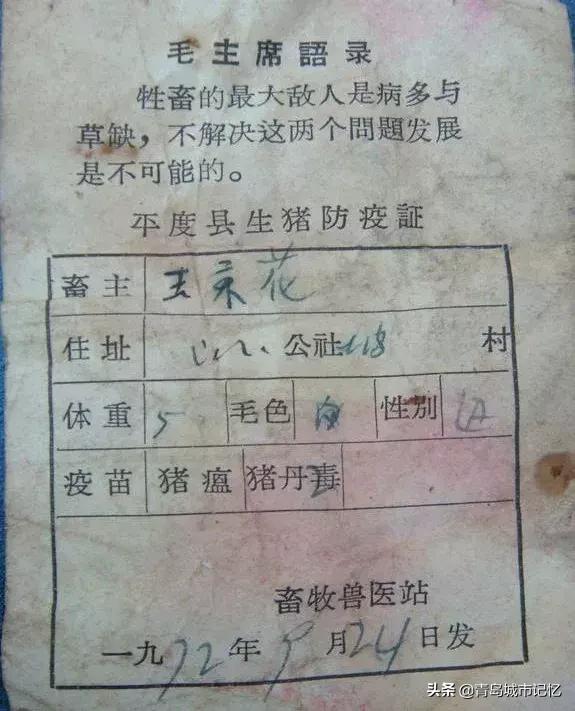 毛主席語录
牲畜的最大敌人是病多与
草缺，不解决这两个問題发展
是不可能的。
平度县生猪防疫証
畜主 花
住址 公社 村
体重 5 毛色 白 性别
疫苗 猪瘟 猪丹毒
畜牧兽医站
一九72年9月24日发
头条 @青岛城市记忆